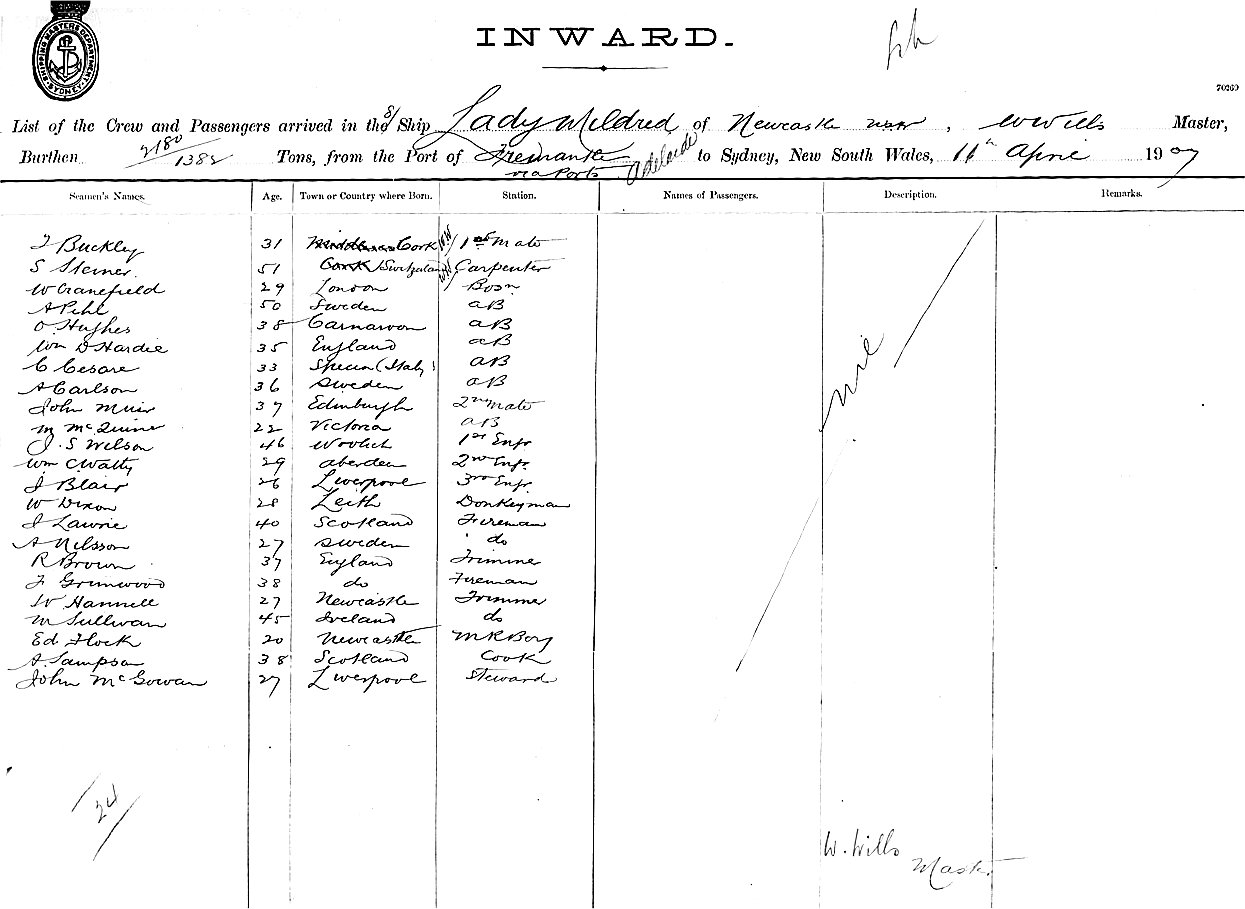 SHIPPING MASTERS DEPARTMENT. SYDNEY.
INWARD.
70269
List of the Crew and Passengers arrived in the S/ Ship Lady Mildred of Newcastle NSW, W Wills Master,
Burthen 2180/1382 Tons, from the Port of Fremantle via Ports Adelaide to Sydney, New South Wales, 11th April 1907
Seamen's Names. Age. Town or Country where Born. Station. Names of Passengers. Description. Remarks.
J Buckley 31 Cork 1st Mate
S Steiner. 51 Cork Switzerland Carpenter
W Cranefield 29 London Bosn
A Pehl 50 Sweden AB
O Hughes 38 Carnarvon AB
Wm D Hardie 35 England AB
C Cesare 33 Specia (Italy) AB
A Carlson 36 Sweden AB
John Muir 37 Edinburgh 2nd Mate
M McQuinn 22 Victoria AB
J. S Wilson 46 Woolich 1st Engr
Wm C Watty 29 Aberdeen 2nd Engr.
J Blair 26 Liverpool 3rd Engr.
W Dixon 28 Leith Donkeyman
J Lawrie 40 Scotland Fireman
A Nilsson 27 Sweden do
R Brown 37 England Trimmer
F Grimwood 38 do Fireman
W Hannell 27 Newcastle Trimmer
M Sullivan 45 Ireland do
Ed Flock 20 Newcastle M R Boy
A. Sampson 38 Scotland Cook
John McGowan 27 Liverpool Steward
nil
24
W. Wills
Master